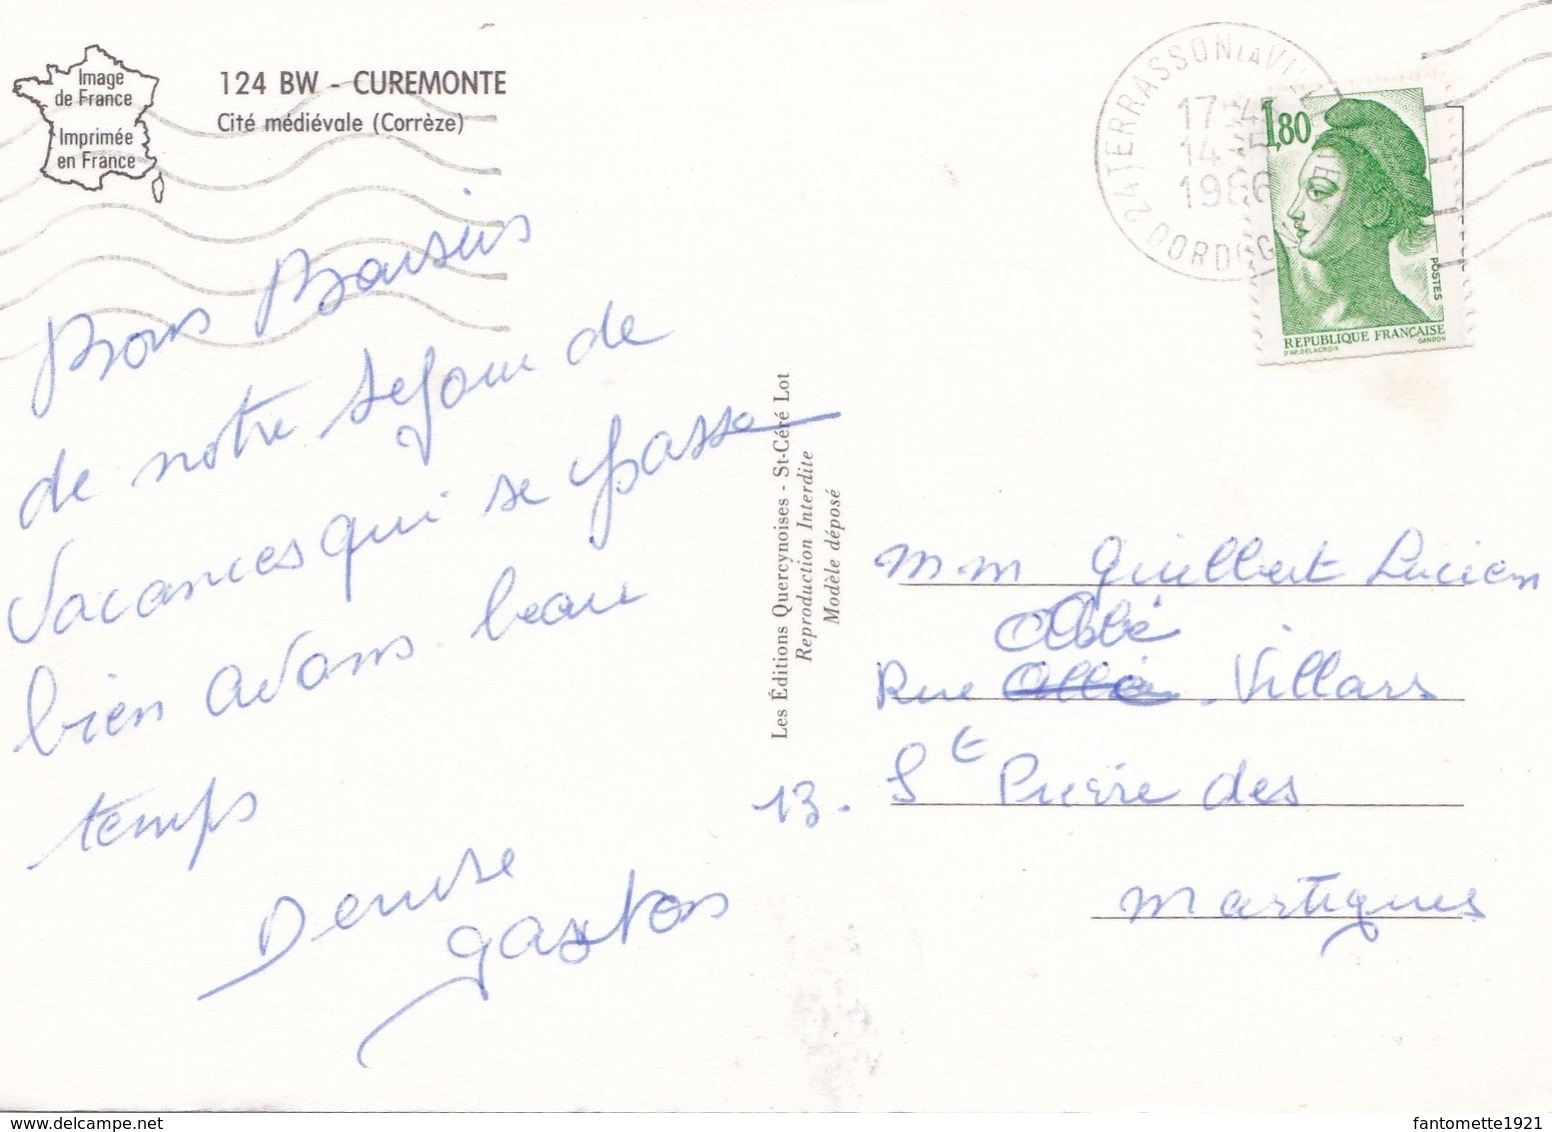 Image
de France
Imprimée
en France
124 BW - CUREMONTE
Cité médiévale (Corrèze)
Bons Baisers
de notre séjour de
Vacances qui se passe
bien avons beau
temps
Denise
gaston
Les Éditions Quercynoises - St-Céré Lot
Reproduction Interdite
Modèle déposé
24 TERRASSON LA VI
17-45
14-5
1986
DORDOGN
1,80
POSTES
REPUBLIQUE FRANÇAISE
D'AP. DELACROIX GANDON
mm Guilbert Lucien
Abbé
Rue Villars
13. St Pierre des
Martigues
fantomette1921